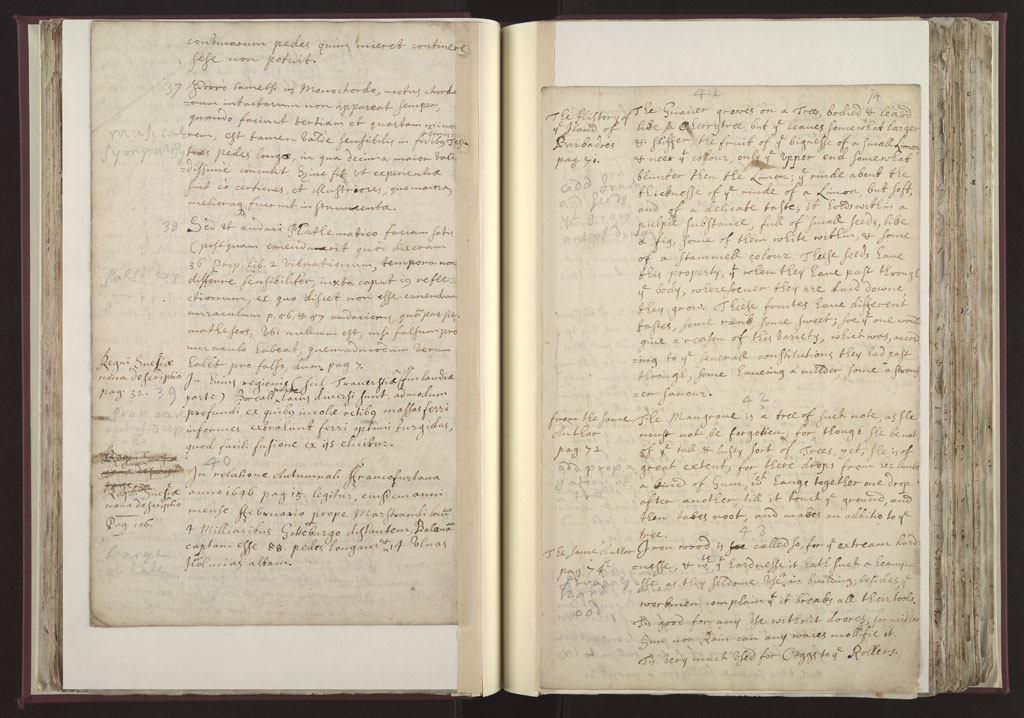 continearum pedes quim mieret continere
sese non potuit.
37 Porro tametsi in Monochordo, nectus chorda
rum intactarum non appareat semper,
quando faciunt tertiam et quartam
rem, est tamen valde sensibilis in
pedes longæ, in qua decima maior
dissime concutit. Hinc fit ut experientiæ
sint eò certiores, et illustriores, quo maiora,
melioraq fuerint instrumenta.
Musical
sympathy
38 Sed et audaci Mathematico faciam satis
(postquam emendaverit quòd dixeram
36 Prop. Lib. 2 vibrationum, tempora non
differre sensibiliter, iuxta caput 19 refle-
ctionum, ex quo discet non esse canendum
miraculum p. 86, & 87 audacioris, quam par sit
matheseos, Ubi nullum est, nisi falsum pro
miraculo habeat, quemadmodum verum
habet pro falso, dum pag 7.
Regni Sueciæ
nova descriptio
pag. 32. 39
In huius regionis (scil.
parte) Boreali lacus diversi sunt, admodum
profundi, ex quibus incolæ retibus massas ferri
informes extrahunt ferri optimi turgidas,
quod facili fusione ex ijs elicitur.
40
Regni Sueciæ
nova descriptio
Pag 106.
In relatione Autumnali Francofurtana
anno 1646. pag 15. legitur, eiusdem anni
mense Februario prope Marstrandi
4 Milliaribus Gotteburgo distantem Balænam
captam esse 88. pedes longam 14 Ulnas
Holmias altam.
Large
41 74
The History of
ye Iland of
Barbadoes
pag. 71.
The Guaver growes on a Tree, bodied & leav'd
like a Cherry tree, but ye leaves somewhat larger
& stiffer; the fruit of ye bignesse of a small Limon
& neer ye colour, only ye upper end somewhat
blunter then the Limon; ye rinde about the
thicknesse of ye rinde of a Limon but soft,
and of a delicate taste; it holds within a
pulpie substance, full of small seeds, like
a fig, some of them white within, & some
of a stammell colour. These seeds have
this property, yt when they have past through
ye body, wheresoever they are laid downe
they grow. These fruites have different
tastes, some rank some sweet; soe yt one would
give a reason of this variety, which was, accor
ding to ye severall constitutions they had past
through, some haveing a milder some a strong
=er savour.
42
from the same
Author
pag. 72.
The Mangrave is a tree of such note as she
must not be forgotten; for though she be not
of ye tall & lusty sort of Trees, yet, she is of
great extent; for there drops from her limbs
a kind of Gum, wch hangs together one drop
after another till it touch ye ground, and
then takes root, and makes an additio to ye
tree.
43
The same Author
pag 74.
Iron wood is called so, for ye extream hard
nesse, & wth yt hardnesse it hath such a heavi
sse, as they seldome use it in building; besides ye
workmen complain yt it breaks all their tools.
Tis good for any use without doores, for neither
Sun nor Rain can any waies mollifie it.
Tis very much used for Coggs to ye Rollers.